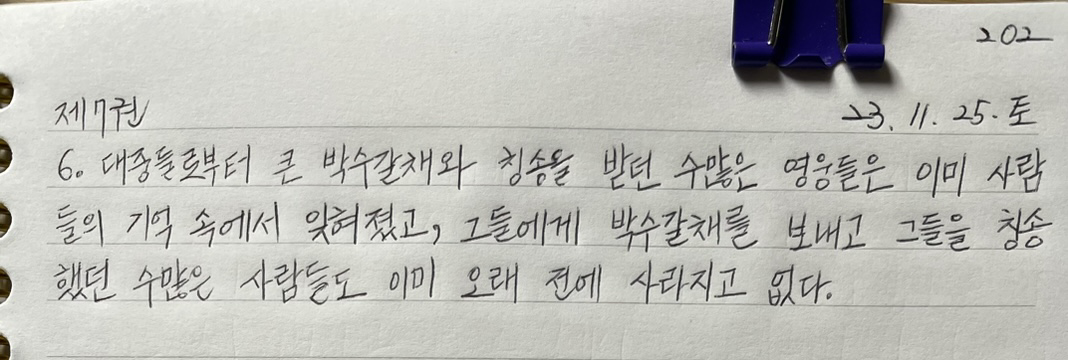 202
제7권 23. 11. 25. 토
6. 대중들로부터 큰 박수갈채와 칭송을 받던 수많은 영웅들은 이미 사람
들의 기억 속에서 잊혀졌고, 그들에게 박수갈채를 보내고 그들을 칭송
했던 수많은 사람들도 이미 오래 전에 사라지고 없다.